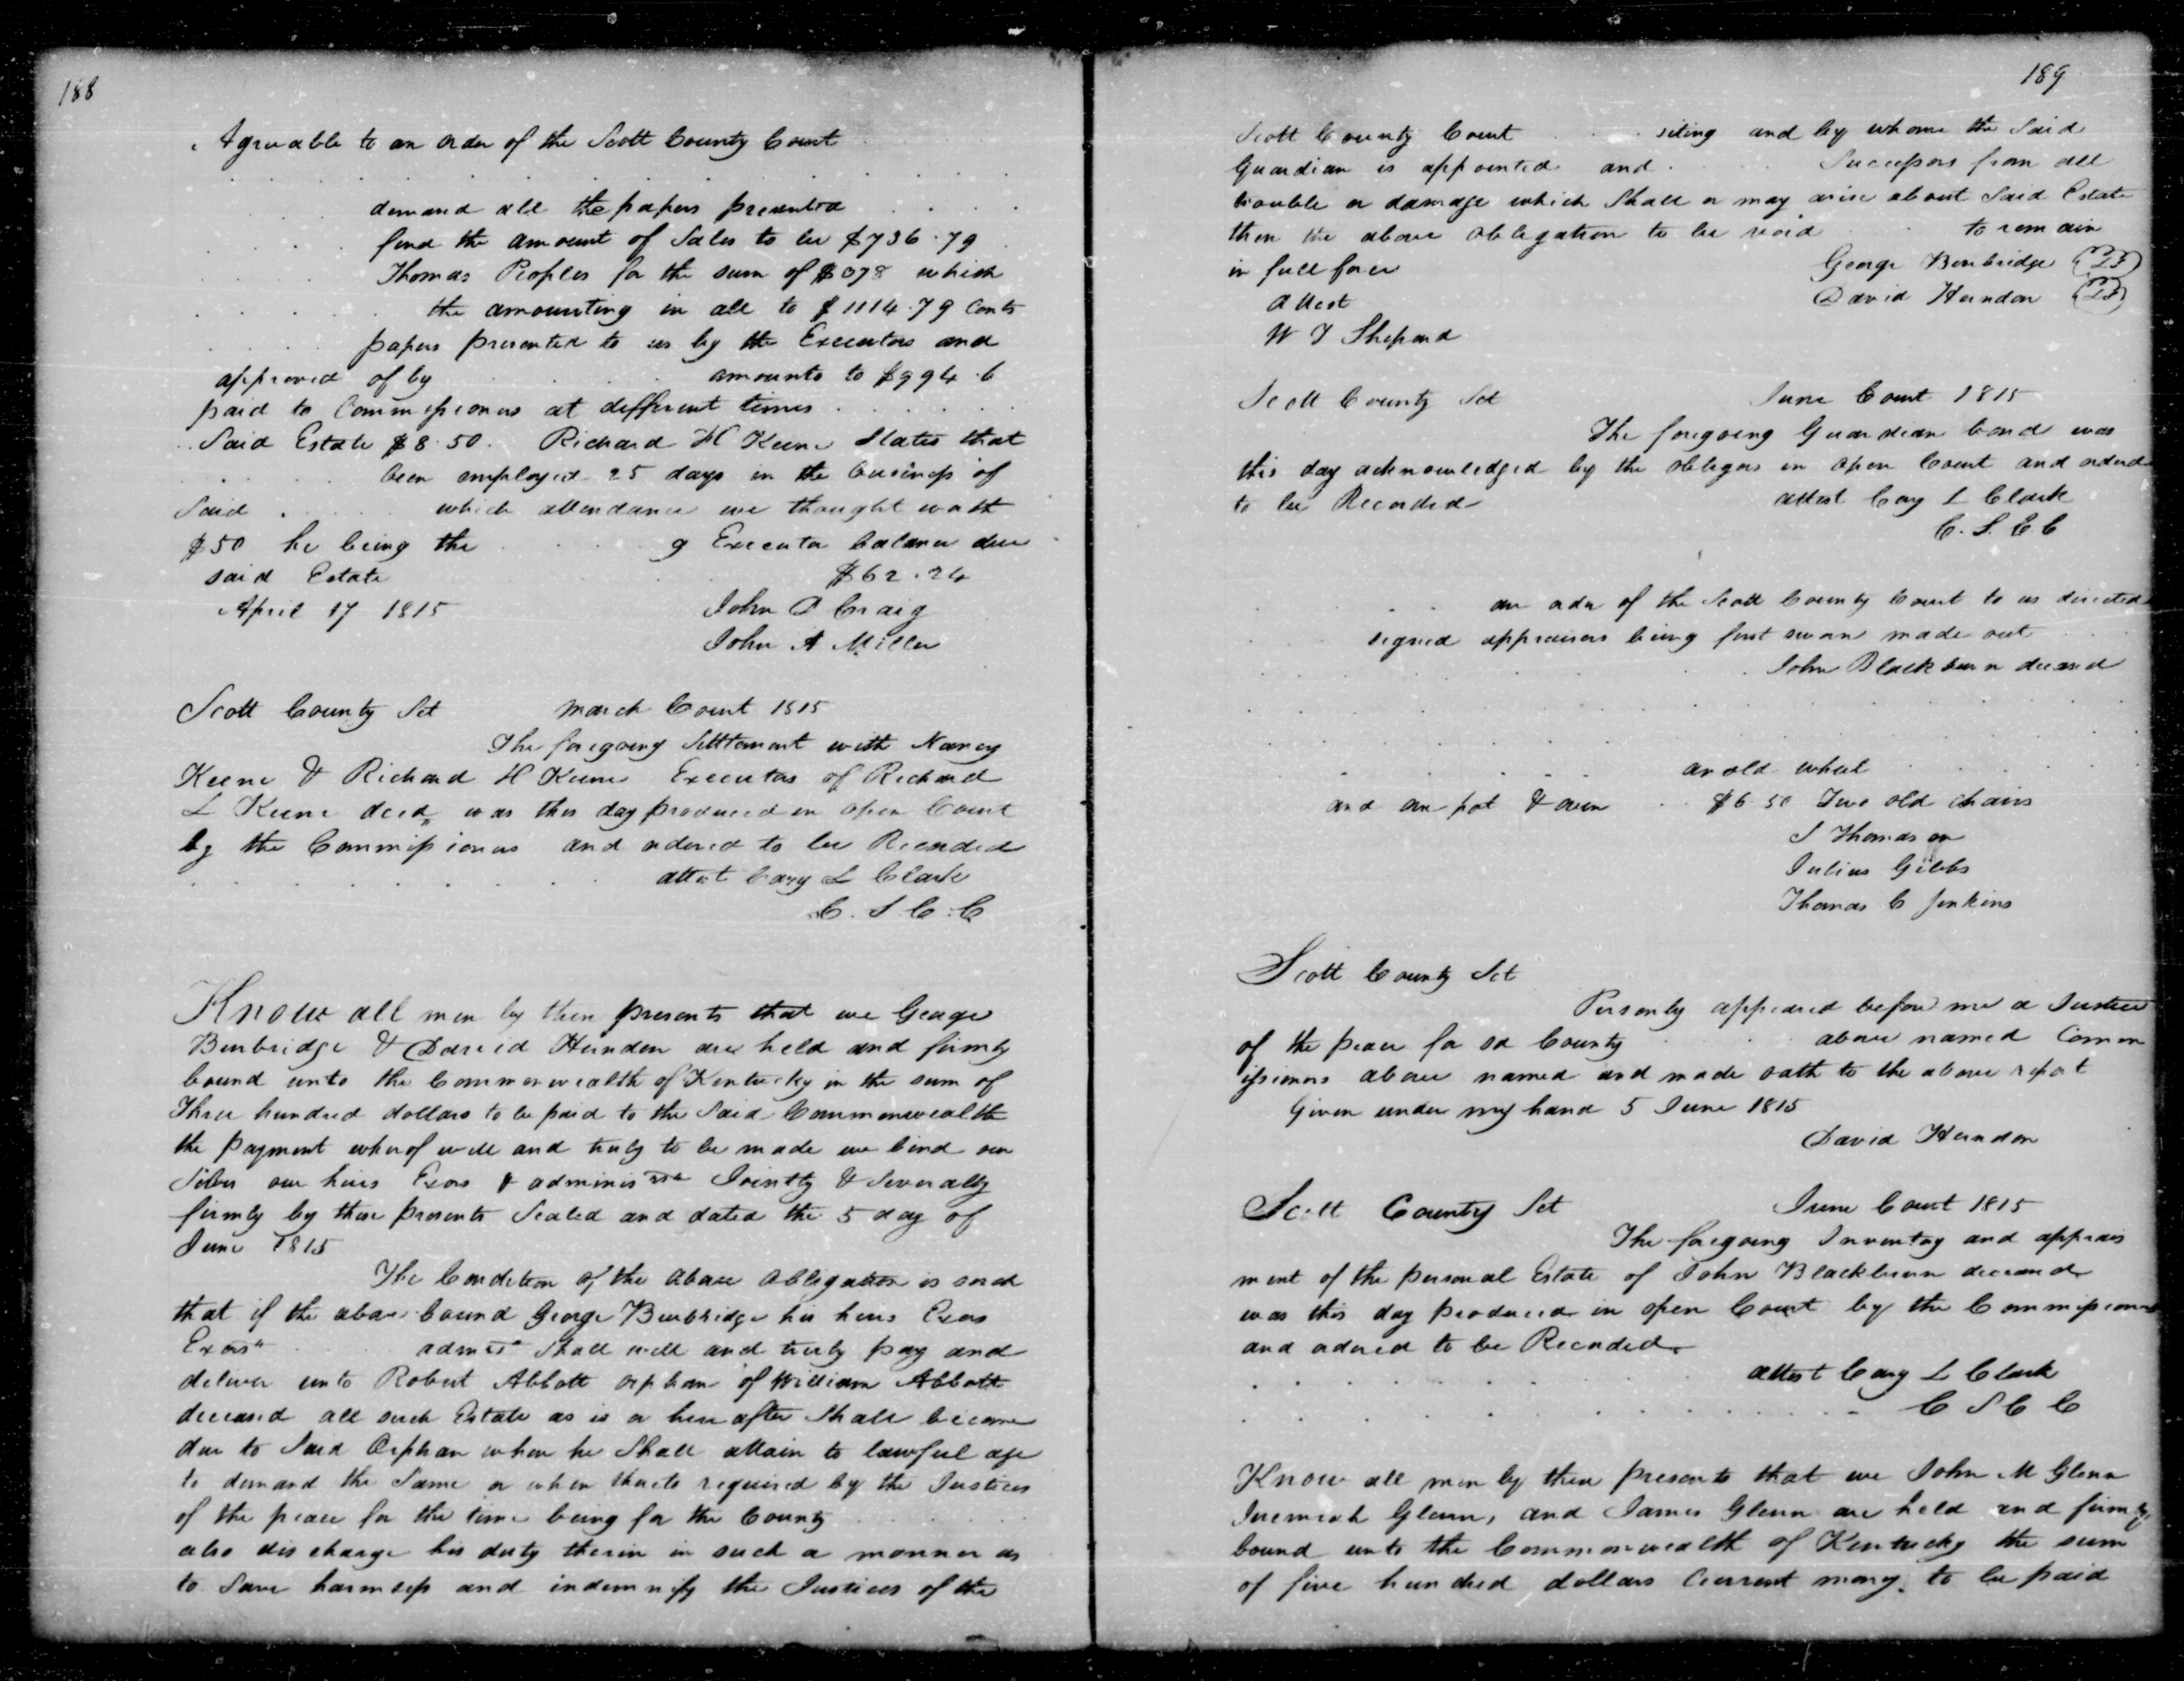 188
Agreeable to an order of the Scott County Court
demand all the papers presented
find the amount of Sales to be $736.79
Thomas Peoples for the sum of $378 which
the amounting in all to $1114.79 Cents
papers presented to us by the Executors and
approved of by amounts to $994.6
paid to Commissioners at different times
Said Estate $8.50. Richard H Keene States that
been employed 25 days in the business of
Said which attendance we thought worth
$50 he being the g Executor balance due
said Estate $62.24
April 17 1815 John D Craig
John A Miller
Scott County Sct March Court 1815
The foregoing Settlement with Nancy
Keene & Richard H Keene Executors of Richard
L Keene decd was this day produced in open Court
by the Commissioners and ordered to be Recorded
attest Cary L Clark
C. S. C. C
Know all men by these presents that we George
Burbridge & David Herndon are held and firmly
bound unto the Commonwealth of Kentucky in the sum of
Three hundred dollars to be paid to the Said Commonwealth
the payment whereof well and truly to be made we bind our
Selves our heirs Exors & adminis Jointly & Severally
firmly by these presents Sealed and dated the 5 day of
June 1815
The Condition of the above obligation is such
that if the above bound George Burbridge his heirs Exors
Exors admrs Shall well and truly pay and
deliver unto Robert Abbott orphan of William Abbott
deceased all such Estate as is or here after Shall become
due to Said Orphan when he Shall attain to lawful age
to demand the Same or when thereto required by the Justices
of the peace for the time being for the County
also discharge his duty therin in such a manner as
to Save harmless and indemnify the Justices of the
189
Scott County Court siting and by whome the Said
Guardian is appointed and Successors from all
trouble or damage which Shall or may arise about Said Estate
then the above obligation to be void to remain
in full force George Burbridge
attest David Herndon
W T Shepard
Scott County Sct June Court 1815
The foregoing Guardian bond was
this day acknowledged by the obligors in open Court and orderd
to be Recorded attest Cary L Clark
C. S. C. C
an order of the Scott County Court to us directed
signed appraisers being first sworn made out
John Blackburn deceased
an old wheel
and one pot & oven $6.50 Two old chairs
S Thomason
Julius Gibbs
Thomas C Jenkins
Scott County Sct
Personly appeared before me a Justice
of the peace for sd County above named Comm
issioners above named and made oath to the above report
Given under my hand 5 June 1815
David Herndon
Scott County Sct June Court 1815
The foregoing Inventory and apprais
ment of the personal Estate of John Blackburn deceased
was this day produced in open Court by the Commissioners
and ordered to be Recorded
attest Cary L Clark
C S C C
Know all men by these presents that we John M Glenn
Jeremiah Glenn, and James Glenn are held and firmly
bound unto the Commonwealth of Kentucky the sum
of five hundred dollars Current mony. to be paid